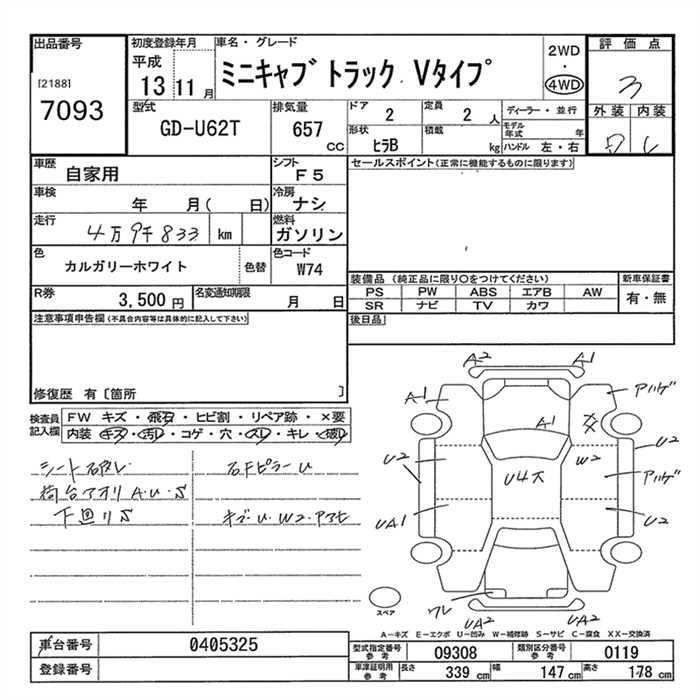 出品番号
[2188]
7093
初度登録年月
平成
13 11月
車名・グレード
ミニキャブ トラック Vタイプ
2WD
・
4WD
評価点
3
型式
GD-U62T
排気量
657
CC
ドア
2
定員
2 人
形状
ヒラB
積載
kg
ディーラー・並行
モデル年式 年
ハンドル 左・右
外装 内装
車歴
自家用
シフト
F5
車検
年 月( 日)
冷房
ナシ
走行
4万9千833 km
燃料
ガソリン
色
カルガリーホワイト
色替
色コード
W74
R券
3,500円
名変通知期限
月 日
セールスポイント(正常に機能するものに限ります)
装備品(純正品に限り○をつけてください)
PS PW ABS エアB AW
SR ナビ TV カワ
新車保証書
有・無
後日品
注意事項申告欄(不具合内容等は具体的に記入して下さい)
修復歴 有〔箇所 〕
検査員
記入欄
FW キズ・飛石・ヒビ割・リペア跡・×要
内装 キズ・汚レ・コゲ・穴・スレ・キレ・破レ
シート破レ
荷台アオリ A・U・S
下廻りS
右Fピラー U
キズ・U・W2・アマヒ
A2 A1
A1 アハゲ
A1 XX
U2 W2 U2
U4大 アハゲ
UA1 U2
ワレ
UA2 UA2
スペア
A-キズ E-エクボ U-凹み W-補修跡 S-サビ C-腐食 XX-交換済
車台番号
0405325
登録番号
型式指定番号
参考
09308
類別区分番号
参考
0119
車庫証明用
参考
長さ 339 cm 幅 147 cm 高さ 178 cm